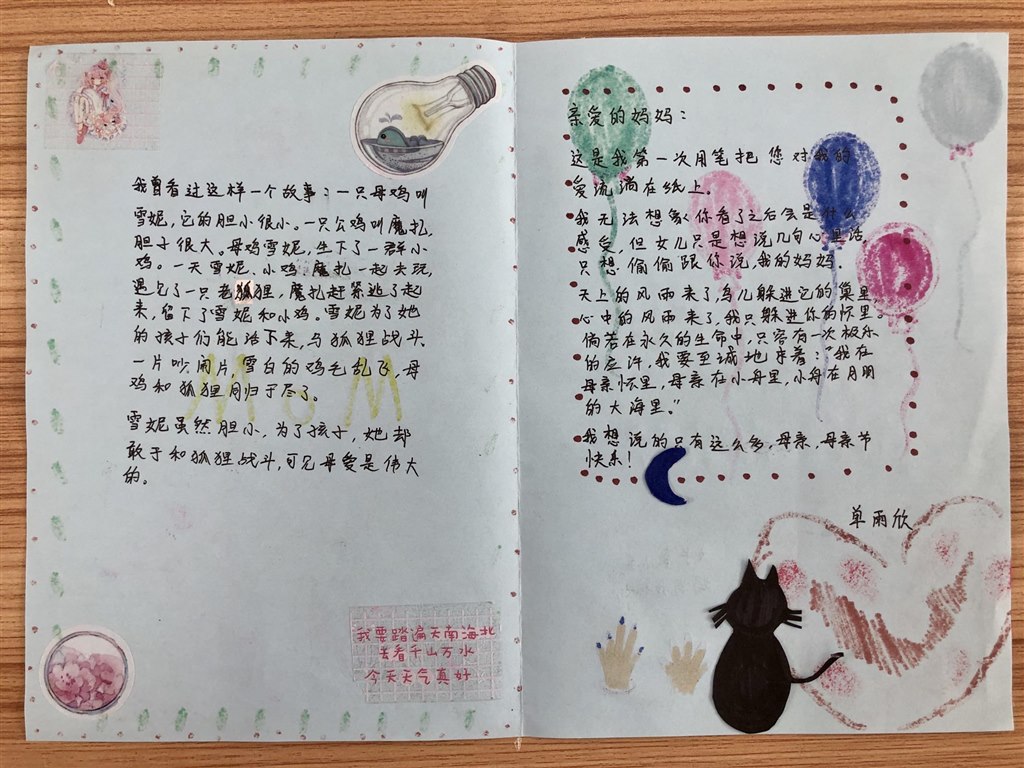 我曾看过这样一个故事:一只母鸡叫
雪妮,它的胆小很小。一只公鸡叫魔扎,
胆子很大。母鸡雪妮,生下了一群小
鸡。一天雪妮、小鸡、魔扎一起去玩,
遇见了一只老狐狸,魔扎赶紧逃了起
来,留下了雪妮和小鸡。雪妮为了她
的孩子们能活下来,与狐狸战斗
一片吵闹片,雪白的鸡毛乱飞,母
鸡和狐狸同归于尽了。
MOM
雪妮虽然胆小,为了孩子,她却
敢于和狐狸战斗,可见母爱是伟大
的。
我要踏遍天南海北
去看千山万水
今天天气真好
亲爱的妈妈:
这是我第一次用笔把您对我的
爱流淌在纸上。
我无法想象你看了之后会是什么
感受,但女儿只是想说几句心里话,
只想偷偷跟你说,我的妈妈.
天上的风雨来了,鸟儿躲进它的巢里,
心中的风雨来了,我只躲进你的怀里。
倘若在永久的生命中,只容有一次极乐
的应许,我要至诚地求着:“我在
母亲怀里,母亲在小舟里,小舟在月明
的大海里。”
我想说的只有这么多,母亲,母亲节
快乐!
单雨欣